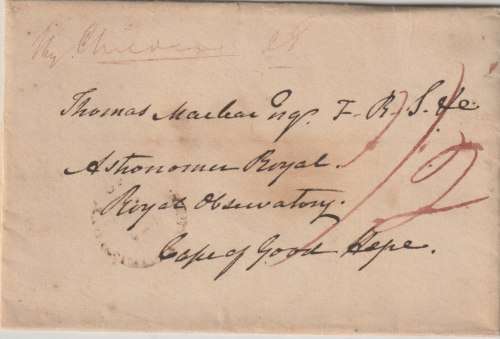 Thomas Maclear Esqr. F. R. S. &c
Astronomer Royal.
Royal Observatory.
Cape of Good Hope.